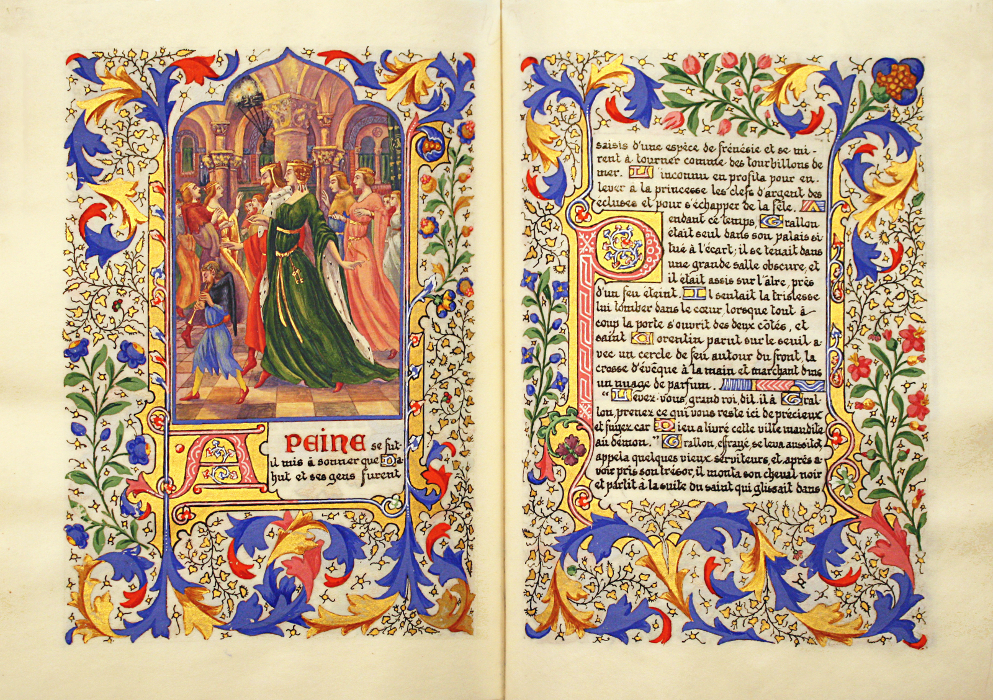 APEINE se fut-
il mis à sonner que Da-
hut et ses gens furent
saisis d'une espèce de frénésie et se mi-
rent à tourner comme des tourbillons de
mer. L'inconnu en profita pour en-
lever à la princesse les clefs d'argent des
écluses et pour s'échapper de la fête.
Pendant ce temps, Grallon
était seul dans son palais si
tué à l'écart; il se tenait dans
une grande salle obscure, et
il était assis sur l'âtre, près
d'un feu éteint. Il sentait la tristesse
lui tomber dans le cœur, lorsque tout à
coup la porte s'ouvrit des deux côtés, et
saint Corentin parut sur le seuil a-
vec un cercle de feu autour du front, la
crosse d'évêque à la main et marchant dans
un nuage de parfum.
"Levez-vous, grand roi, dit-il à Gral-
lon, prenez ce qui vous reste ici de précieux
et fuyez car Dieu a livré cette ville maudite
au démon." Grallon, effrayé, se leva aussitôt
appela quelques vieux serviteurs, et après a-
voir pris son trésor, il monta son cheval noir
et partit à la suite du saint qui glissait dans